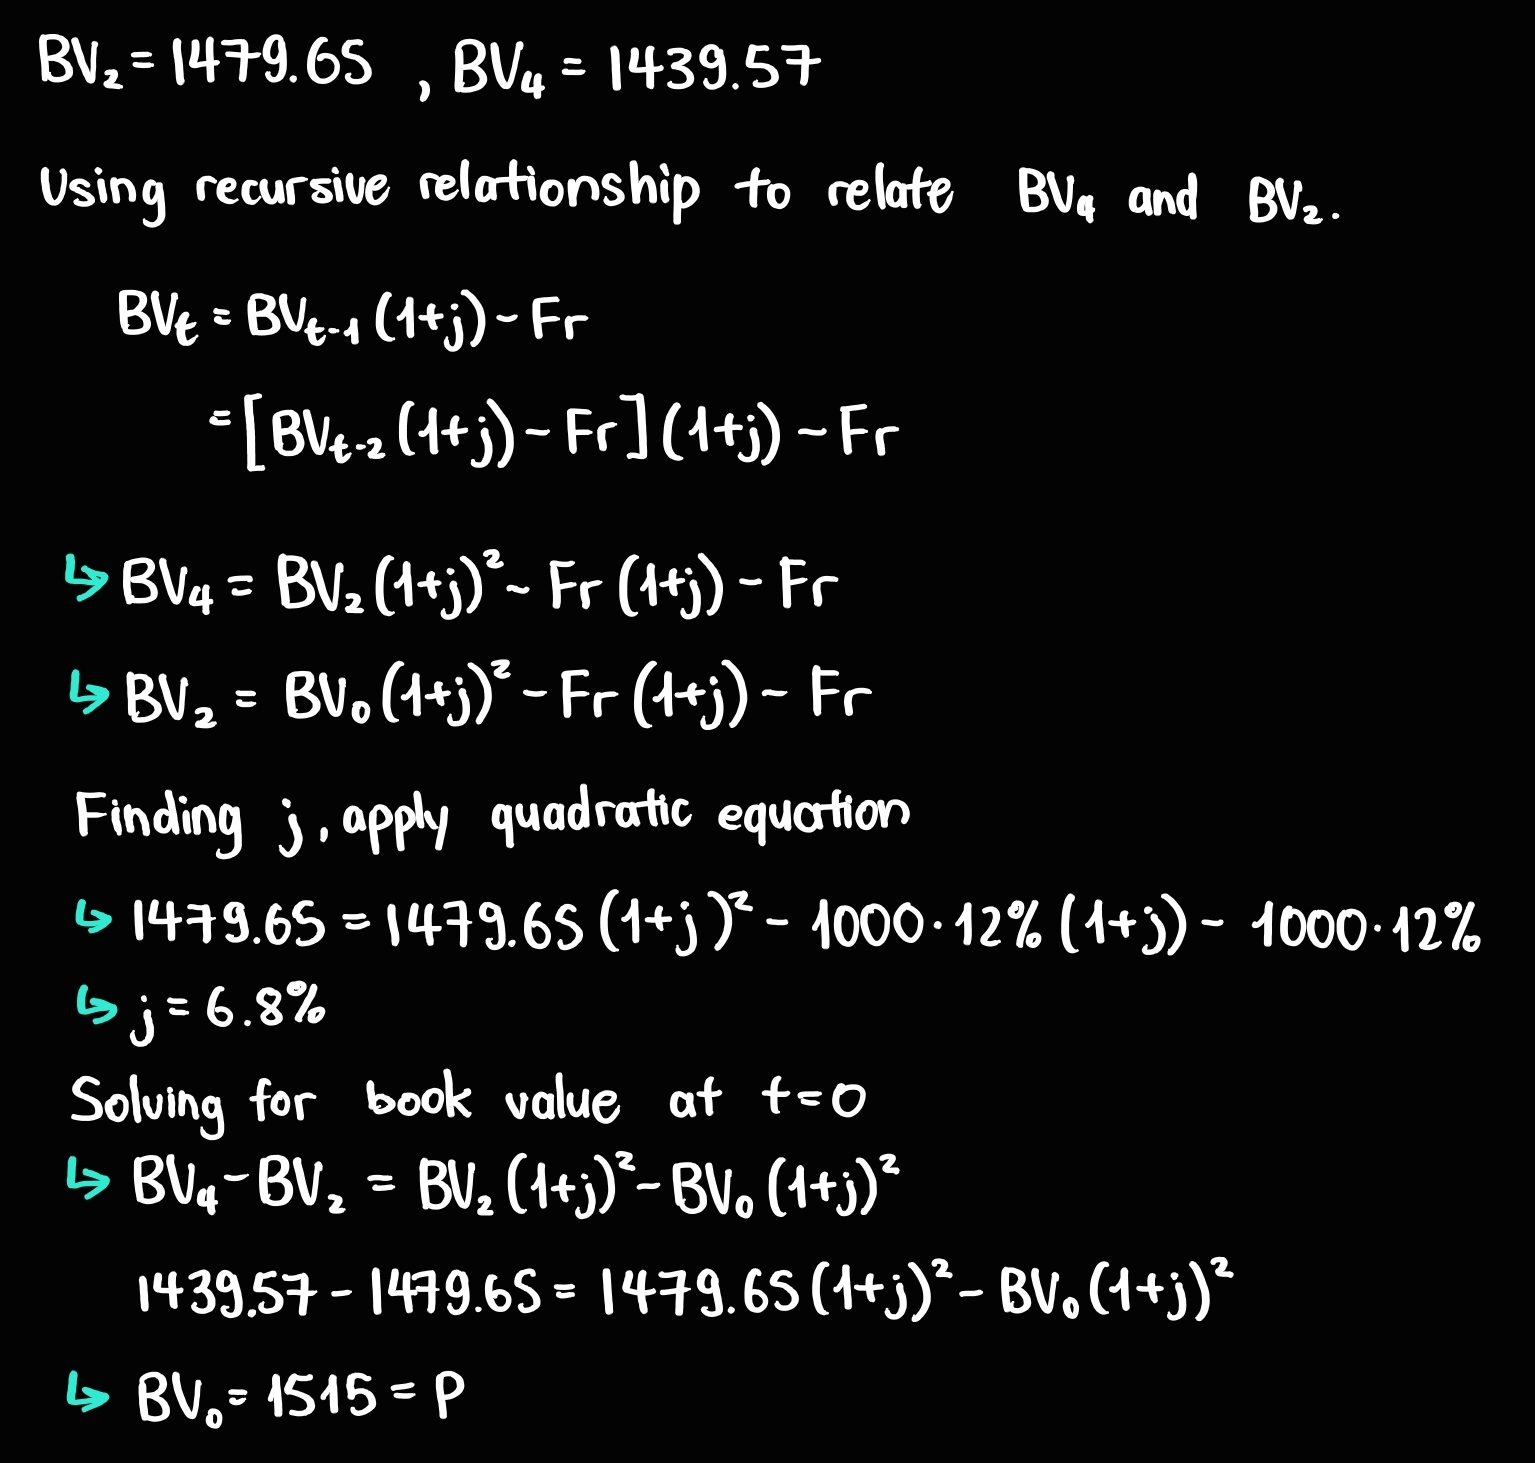 BV₂ = 1479.65 , BV₄ = 1439.57
Using recursive relationship to relate BV₄ and BV₂.
BVₜ = BVₜ₋₁ (1+j) - Fr
= [BVₜ₋₂ (1+j) - Fr] (1+j) - Fr
↳ BV₄ = BV₂ (1+j)² - Fr (1+j) - Fr
↳ BV₂ = BV₀ (1+j)² - Fr (1+j) - Fr
Finding j, apply quadratic equation
↳ 1479.65 = 1479.65 (1+j)² - 1000·12% (1+j) - 1000·12%
↳ j = 6.8%
Solving for book value at t=0
↳ BV₄ - BV₂ = BV₂ (1+j)² - BV₀ (1+j)²
1439.57 - 1479.65 = 1479.65 (1+j)² - BV₀ (1+j)²
↳ BV₀ = 1515 = P